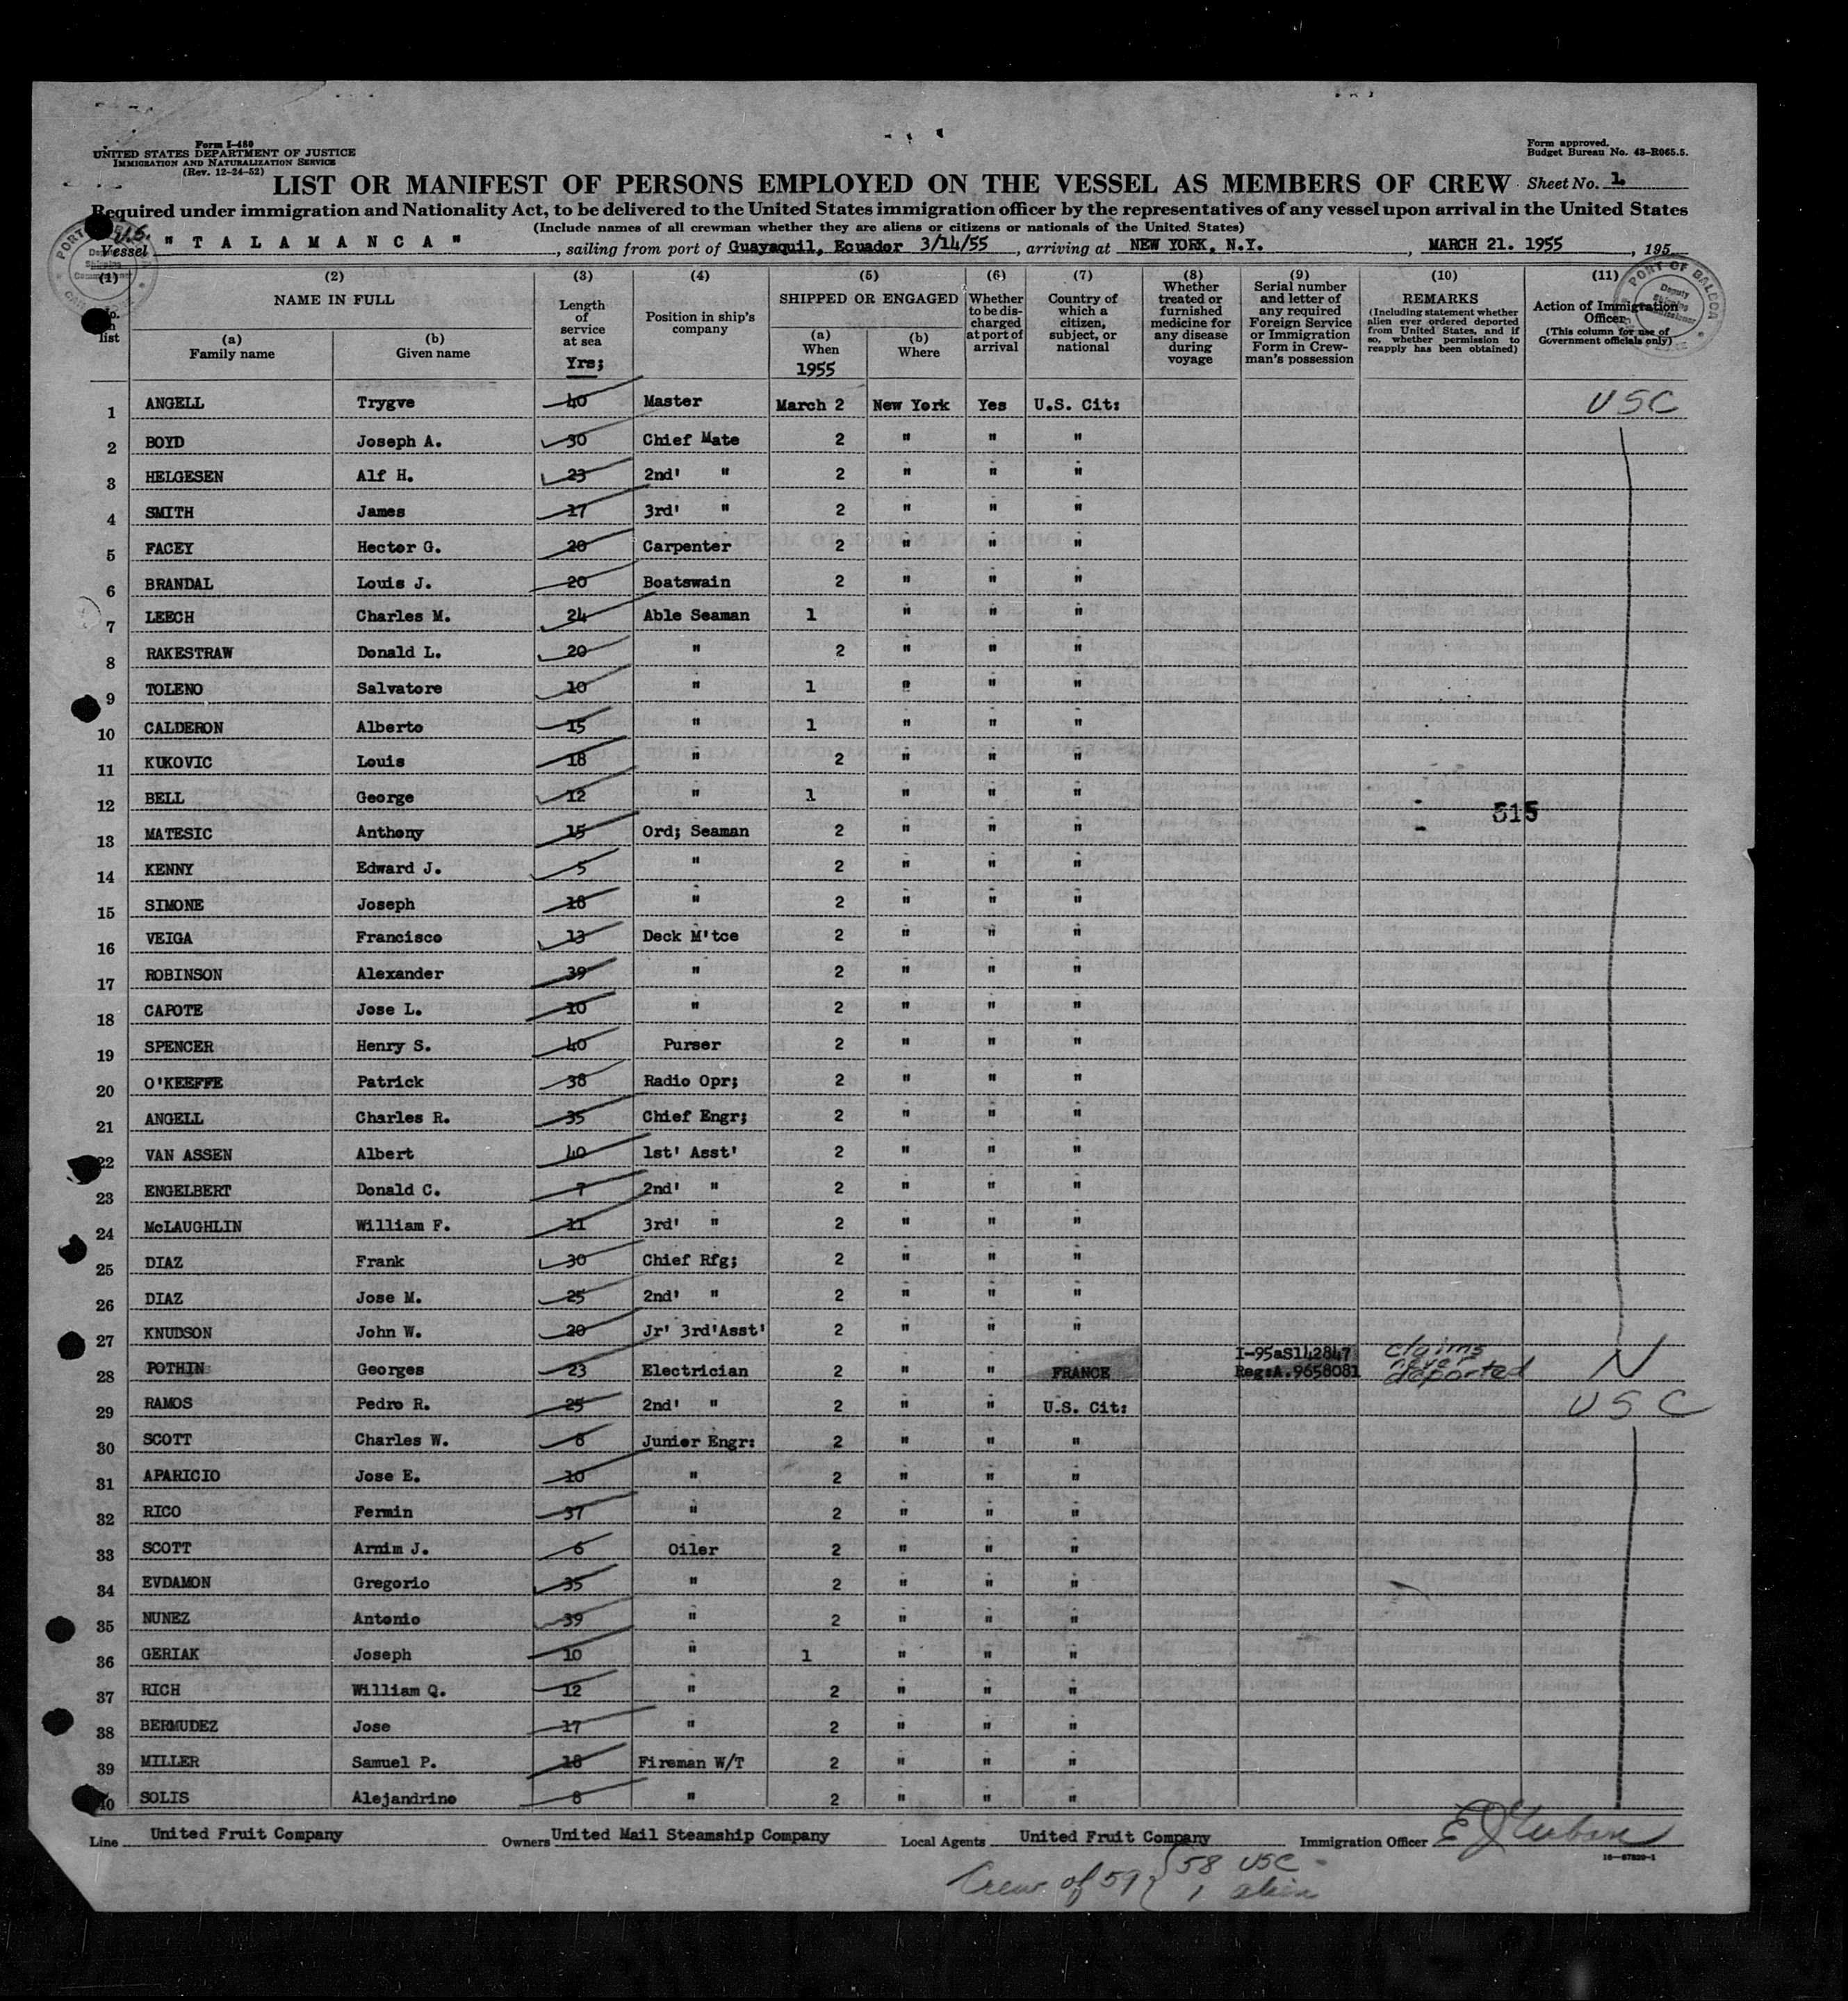 Form I-480
UNITED STATES DEPARTMENT OF JUSTICE
IMMIGRATION AND NATURALIZATION SERVICE
(Rev. 12-24-52)
Form approved.
Budget Bureau No. 43-R065.5.
LIST OR MANIFEST OF PERSONS EMPLOYED ON THE VESSEL AS MEMBERS OF CREW Sheet No. 1
Required under immigration and Nationality Act, to be delivered to the United States immigration officer by the representatives of any vessel upon arrival in the United States
(Include names of all crewman whether they are aliens or citizens or nationals of the United States)
U.S.
Vessel "TALAMANCA", sailing from port of Guayaquil, Ecuador 3/14/55, arriving at NEW YORK, N.Y., MARCH 21. 1955, 195
(1) (2) (3) (4) (5) (6) (7) (8) (9) (10) (11)
No. on list
NAME IN FULL
(a) Family name
(b) Given name
Length of service at sea
Yrs;
Position in ship's company
SHIPPED OR ENGAGED
(a) When
1955
(b) Where
Whether to be discharged at port of arrival
Country of which a citizen, subject, or national
Whether treated or furnished medicine for any disease during voyage
Serial number and letter of any required Foreign Service or Immigration Form in Crewman's possession
REMARKS
(Including statement whether alien ever ordered deported from United States, and if so, whether permission to reapply has been obtained)
Action of Immigration Officer
(This column for use of Government officials only)
PORT OF BALBOA
Deputy Shipping Commissioner
1 ANGELL Trygve 40 Master March 2 New York Yes U.S. Cit: USC
2 BOYD Joseph A. 30 Chief Mate 2 " " "
3 HELGESEN Alf H. 23 2nd' " 2 " " "
4 SMITH James 17 3rd' " 2 " " "
5 FACEY Hector G. 20 Carpenter 2 " " "
6 BRANDAL Louis J. 20 Boatswain 2 " " "
7 LEECH Charles M. 24 Able Seaman 1 " " "
8 RAKESTRAW Donald L. 20 " 2 " " "
9 TOLENO Salvatore 10 " 1 " " "
10 CALDERON Alberto 15 " 1 " " "
11 KUKOVIC Louis 18 " 2 " " "
12 BELL George 12 " 1 " " "
515
13 MATESIC Anthony 15 Ord; Seaman 2 " " "
14 KENNY Edward J. 5 " 2 " " "
15 SIMONE Joseph 18 " 2 " " "
16 VEIGA Francisco 13 Deck M'tce 2 " " "
17 ROBINSON Alexander 39 " 2 " " "
18 CAPOTE Jose L. 10 " 2 " " "
19 SPENCER Henry S. 40 Purser 2 " " "
20 O'KEEFFE Patrick 38 Radio Opr; 2 " " "
21 ANGELL Charles R. 35 Chief Engr; 2 " " "
22 VAN ASSEN Albert 40 1st' Asst' 2 " " "
23 ENGELBERT Donald C. 7 2nd' " 2 " " "
24 McLAUGHLIN William F. 11 3rd' " 2 " " "
25 DIAZ Frank 30 Chief Rfg; 2 " " "
26 DIAZ Jose M. 25 2nd' " 2 " " "
27 KNUDSON John W. 20 Jr' 3rd'Asst' 2 " " "
28 POTHIN Georges 23 Electrician 2 " " FRANCE I-95aS142847 Reg:A.9658081 claims never deported N
29 RAMOS Pedro R. 25 2nd' " 2 " " U.S. Cit: USC
30 SCOTT Charles W. 8 Junier Engr: 2 " " "
31 APARICIO Jose E. 10 " 2 " " "
32 RICO Fermin 37 " 2 " " "
33 SCOTT Arnim J. 6 Oiler 2 " " "
34 EVDAMON Gregorio 35 " 2 " " "
35 NUNEZ Antonio 39 " 2 " " "
36 GERIAK Joseph 10 " 1 " " "
37 RICH William Q. 12 " 2 " " "
38 BERMUDEZ Jose 17 " 2 " " "
39 MILLER Samuel P. 18 Fireman W/T 2 " " "
40 SOLIS Alejandrino 8 " 2 " " "
Line United Fruit Company Owners United Mail Steamship Company Local Agents United Fruit Company Immigration Officer
Crew of 59 { 58 USC
1 alien